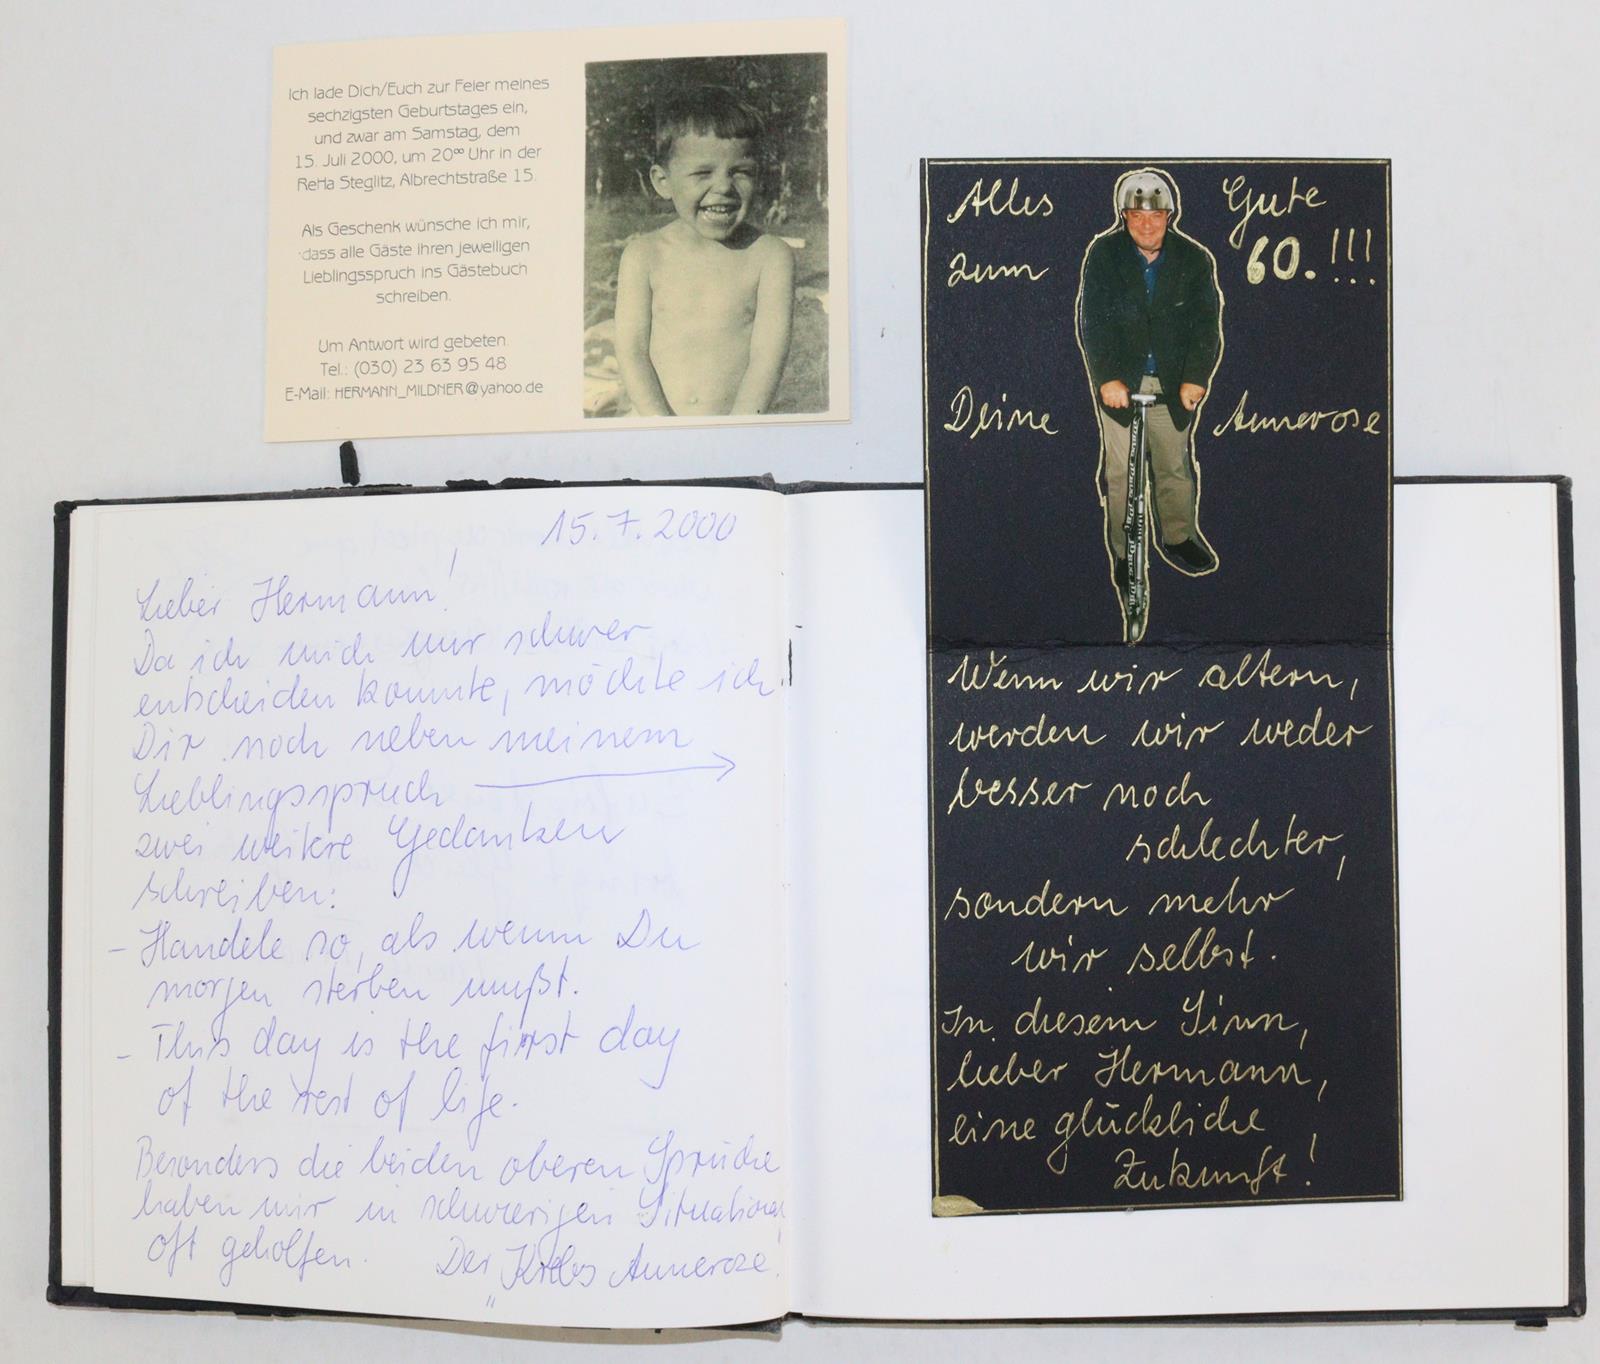 Ich lade Dich/Euch zur Feier meines
sechzigsten Geburtstages ein,
und zwar am Samstag, dem
15. Juli 2000, um 20⁰⁰ Uhr in der
ReHa Steglitz, Albrechtstraße 15.
Als Geschenk wünsche ich mir,
dass alle Gäste ihren jeweiligen
Lieblingsspruch ins Gästebuch
schreiben.
Um Antwort wird gebeten.
Tel.: (030) 23 63 95 48
E-Mail: HERMANN_MILDNER@yahoo.de
15.7.2000
Lieber Hermann!
Da ich mich nur schwer
entscheiden konnte, möchte ich
Dir noch neben meinem
Lieblingsspruch →
zwei weitere Gedanken
schreiben:
- Handele so, als wenn Du
morgen sterben mußt.
- This day is the first day
of the rest of life.
Besonders die beiden oberen Sprüche
haben mir in schwierigen Situationen
oft geholfen.
Der „Krebs Annerose"
Alles Gute
zum 60.!!!
Deine Annerose
Wenn wir altern,
werden wir weder
besser noch
schlechter,
sondern mehr
wir selbst.
In diesem Sinn,
lieber Hermann,
eine glückliche
Zukunft!